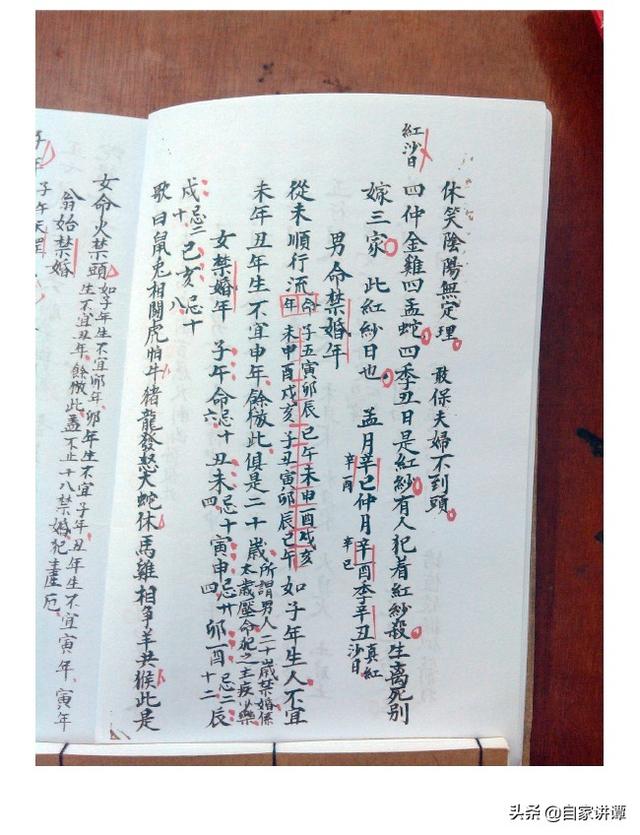 休笑陰陽無定理 敢保夫婦不到頭
紅沙日
四仲金雞四孟蛇四季丑日是紅紗有人犯着紅紗殺生離死别
嫁三家 此紅紗日也 孟月辛巳辛酉仲月辛酉辛巳季辛丑真紅沙日
男命禁婚年
從未順行流
命子丑寅卯辰巳午未申酉戌亥
年未申酉戌亥子丑寅卯辰巳午
如子年生人不宜
未年丑年生不宜申年餘倣此俱是二十歲
所謂男人二十歲禁婚係
太歲壓命犯之主疾病藥
女禁婚年 子午命忌十六 丑未忌十四 寅申忌廿四 卯酉忌十二 辰
戌忌十二 巳亥忌十八
歌曰鼠兔相鬪虎怕牛猪龍發怒犬蛇休馬雞相爭羊共猴此是
女命火禁頭
如子年生不宜卯年卯年生不宜子年丑年生不宜寅年寅年
生不宜丑年餘倣此
翁始禁婚
頭条 @自家讲谭